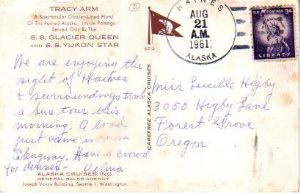 TRACY ARM
A Spectacular Glacier-Lined Fiord
Of The Famed Alaska Inside Passage
Served Only By The
S.S. GLACIER QUEEN
AND S.S. YUKON STAR
We are enjoying the
sight of Haines
& surroundings took
a bus tour this
morning. A load
just came in from
Skagway. Have a crowd
for dinner - Velma
ALASKA CRUISES INC.
GENERAL SALES AGENCY
Joseph Vance Building, Seattle 1, Washington
CAREFREE ALASKA CRUISES
HAINES
AUG
21
A.M.
1961
ALASKA
3¢
LIBERTY
Miss Lucille Higby
3050 Higby Lane
Forest Grove
Oregon